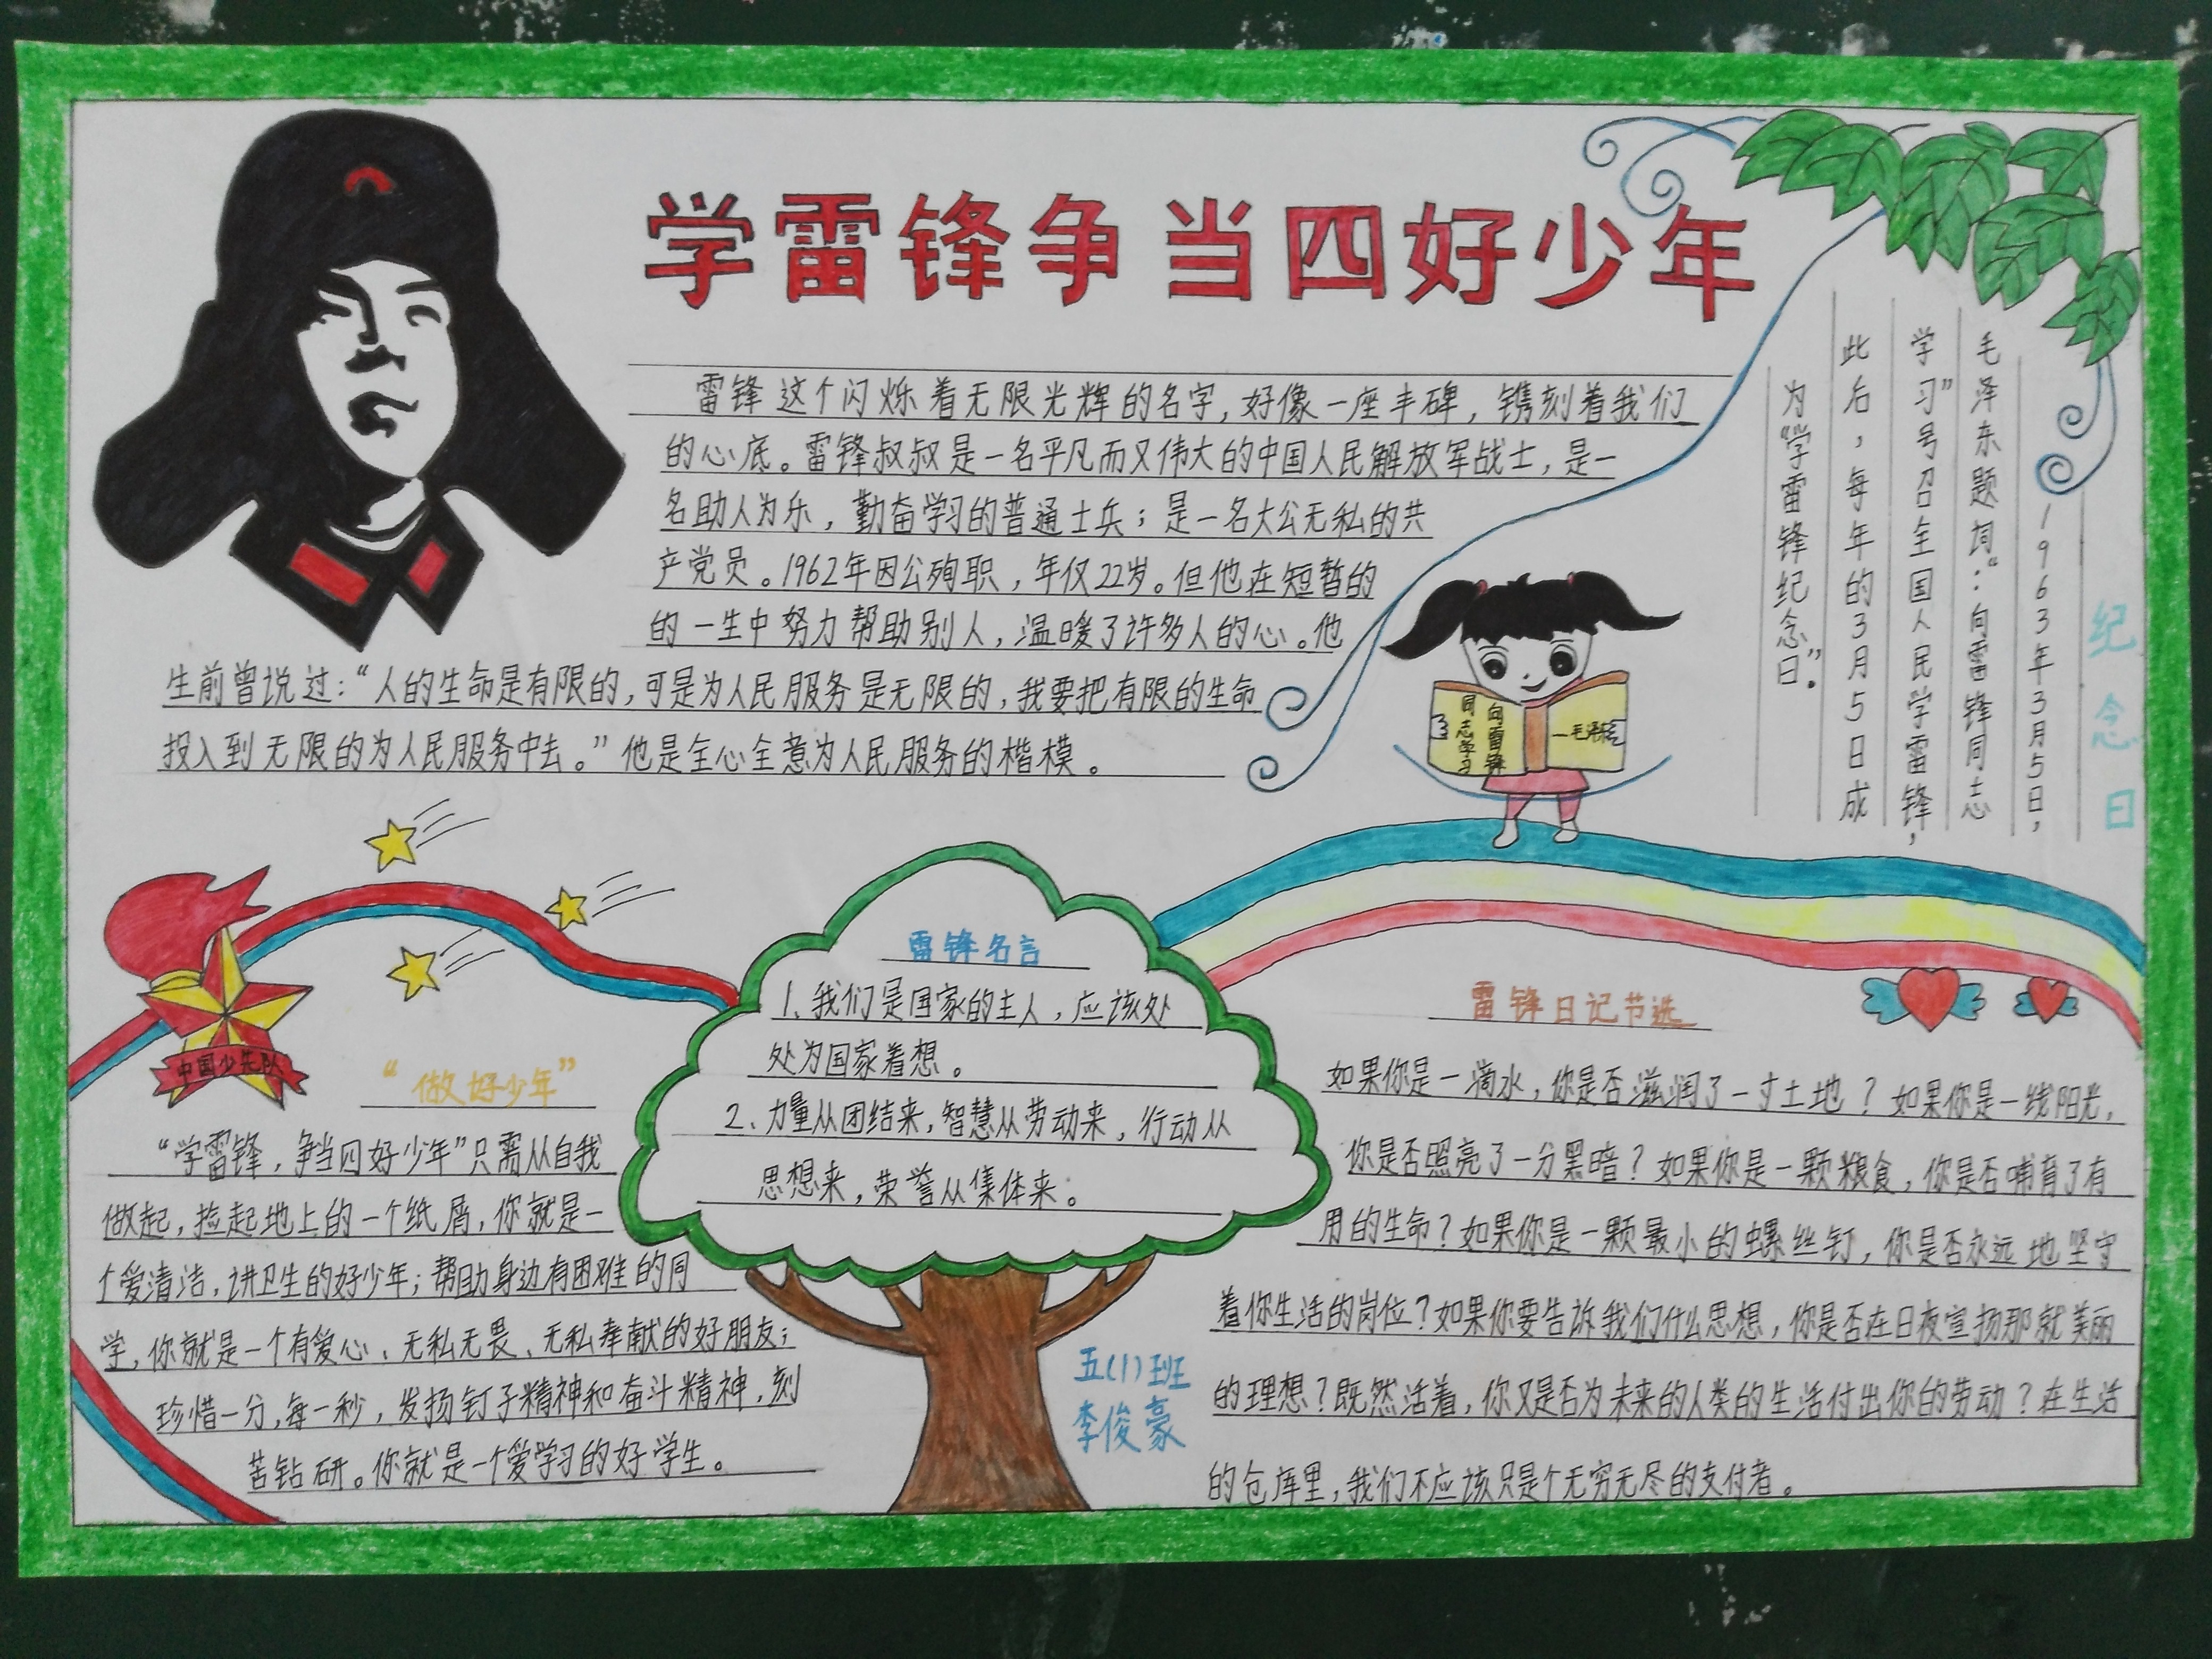 学雷锋争当四好少年
雷锋这个闪烁着无限光辉的名字，好像一座丰碑，镌刻着我们
的心底。雷锋叔叔是一名平凡而又伟大的中国人民解放军战士，是一
名助人为乐，勤奋学习的普通士兵；是一名大公无私的共
产党员。1962年因公殉职，年仅22岁。但他在短暂的
的一生中努力帮助别人，温暖了许多人的心。他
生前曾说过：“人的生命是有限的，可是为人民服务是无限的，我要把有限的生命
投入到无限的为人民服务中去。”他是全心全意为人民服务的楷模。
纪念日
1963年3月5日，
毛泽东题词：“向雷锋同志
学习”号召全国人民学雷锋，
此后，每年的3月5日成
为“学雷锋纪念日”。
向雷锋
同志学习
一毛泽东
中国少先队
“做好少年”
“学雷锋，争当四好少年”只需从自我
做起，捡起地上的一个纸屑，你就是一
个爱清洁，讲卫生的好少年；帮助身边有困难的同
学，你就是一个有爱心、无私无畏、无私奉献的好朋友；
珍惜一分，每一秒，发扬钉子精神和奋斗精神，刻
苦钻研。你就是一个爱学习的好学生。
雷锋名言
1、我们是国家的主人，应该处
处为国家着想。
2、力量从团结来，智慧从劳动来，行动从
思想来，荣誉从集体来。
五(1)班
李俊豪
雷锋日记节选
如果你是一滴水，你是否滋润了一寸土地？如果你是一线阳光，
你是否照亮了一分黑暗？如果你是一颗粮食，你是否哺育了有
用的生命？如果你是一颗最小的螺丝钉，你是否永远地坚守
着你生活的岗位？如果你要告诉我们什么思想，你是否在日夜宣扬那就美丽
的理想？既然活着，你又是否为未来的人类的生活付出你的劳动？在生活
的仓库里，我们不应该只是个无穷无尽的支付者。